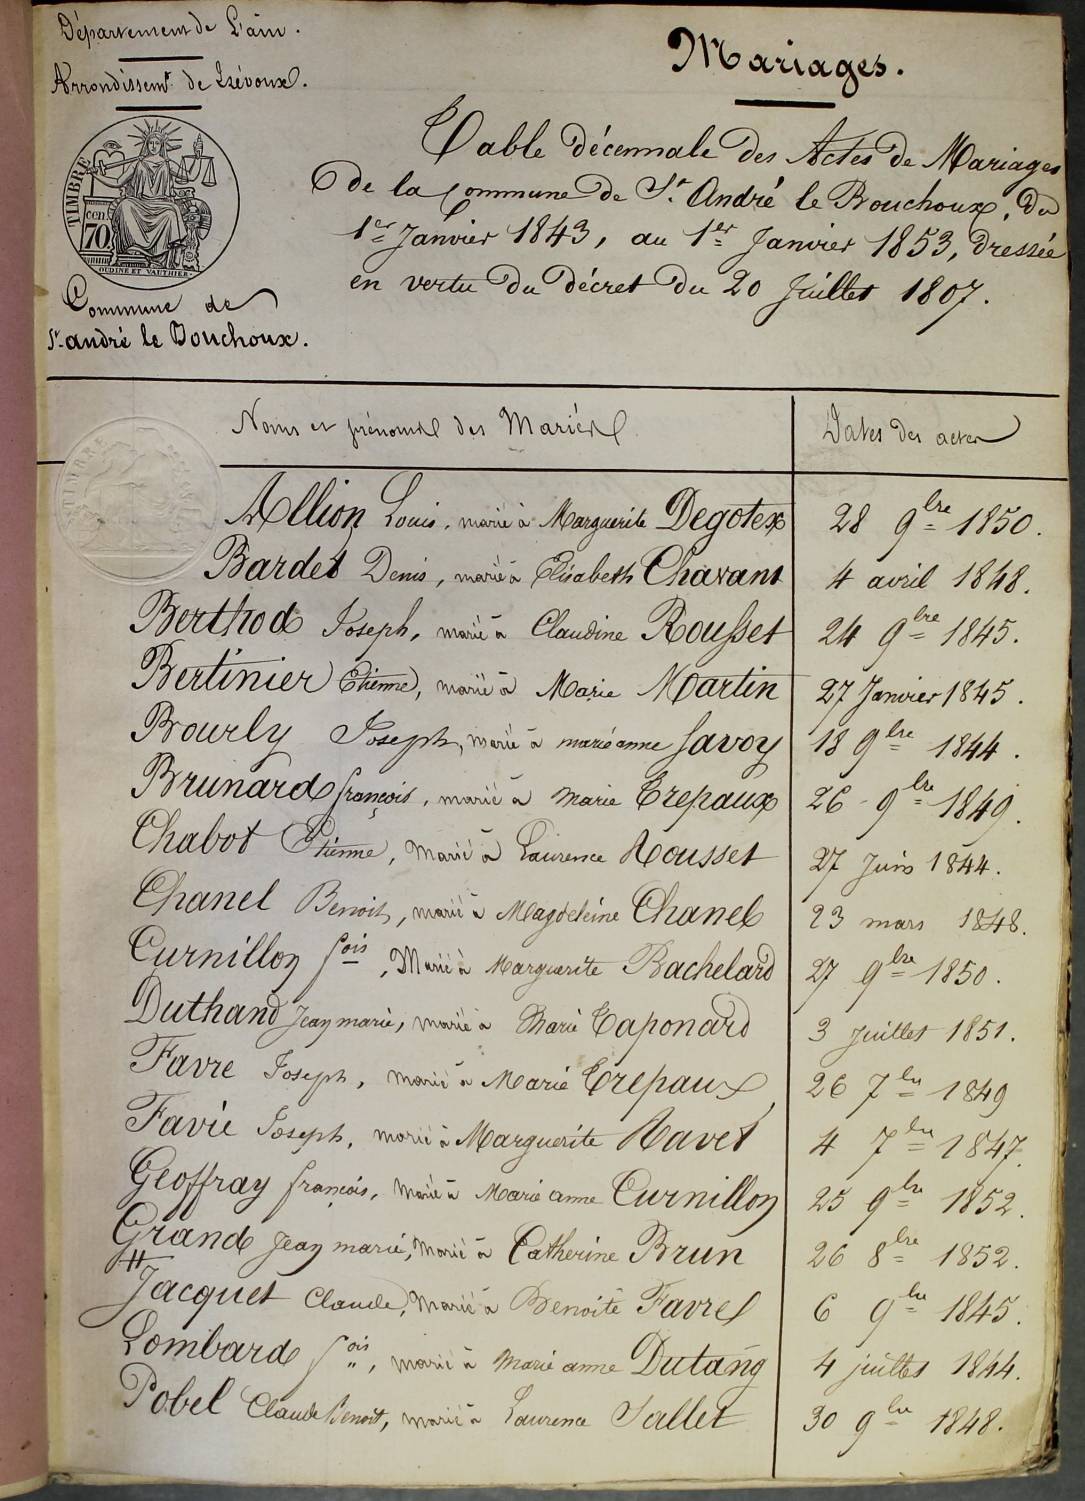 Département de L'ain.
Arrondissemt de Trévoux.
TIMBRE
cen.
70
OUDINÉ ET VAUTHIER.
Commune de
St andré le Bouchoux.
Mariages.
Table décennale des Actes de Mariages
de la Commune de St. André le Bouchoux, du
1er Janvier 1843, au 1er Janvier 1853, dressée
en vertu du décret du 20 Juillet 1807.
Noms et prénoms des Mariés Dates des actes
TIMBRE
Allion Louis, marié à Marguerite Degotex 28 9bre 1850.
Bardet Denis, marié à Elisabeth Chavant 4 avril 1848.
Berthod Joseph, marié à Claudine Rousset 24 9bre 1845.
Bertinier Etienne, marié à Marie Martin 27 Janvier 1845.
Bourly Joseph, marié à marie anne Savoy 18 9bre 1844.
Brunard françois, marié à Marie Trepaux 26 9bre 1849.
Chabot Etienne, Marié à Laurence Rousset 27 Juin 1844.
Chanel Benoit, marié à Magdeleine Chanel 23 mars 1848.
Curnillon fois, Marié à Marguerite Bachelard 27 9bre 1850.
Duthand Jean marie, marié à Marie Taponard 3 Juillet 1851.
Favre Joseph, marié à Marie Trepaux, 26 7bre 1849
Favie Joseph, marié à Marguerite Ravet 4 7bre 1847.
Geoffray françois, Marié à Marie anne Curnillon 25 9bre 1852.
Grand Jean marie, Marié à Catherine Brun 26 8bre 1852.
Jacquet Claude, Marié à Benoite Favre 6 9bre 1845.
Lombard fois, marié à Marie anne Dutang 4 juillet 1844.
Pobel Claude Benoit, marié à Laurence Sallet 30 9bre 1848.